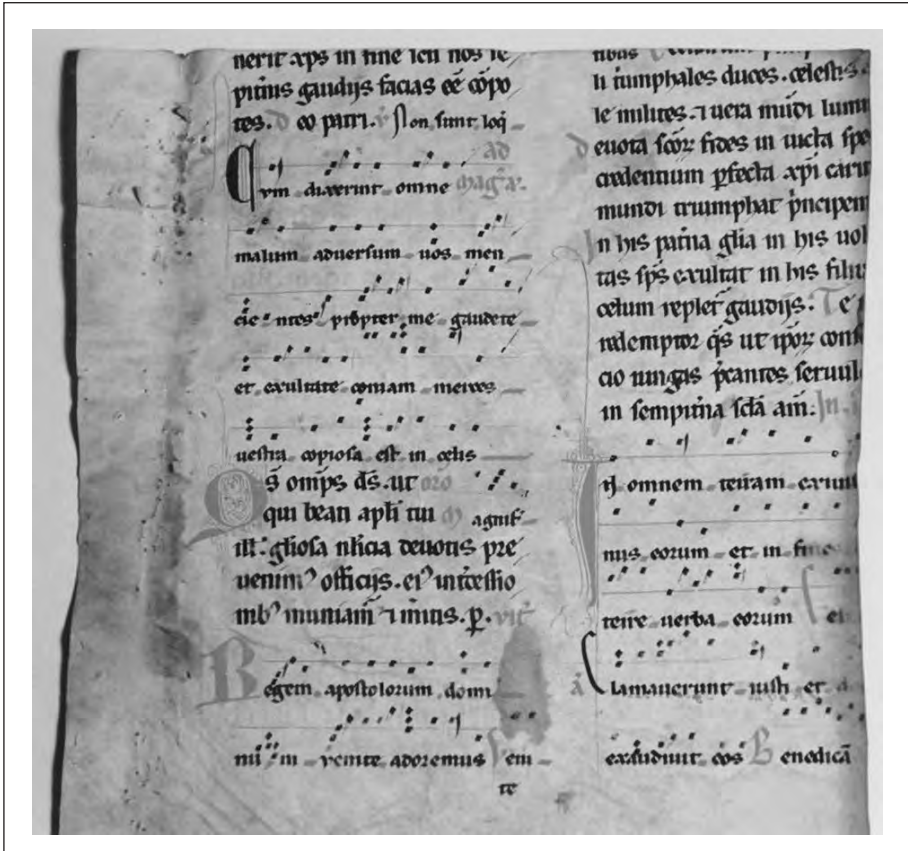 nerit xps in fine leti nos re
pitius gaudijs facias eē cōpo
tes. d eo patri. v Non sunt loq
ad
Cum dixerint omne Magā.
malum adversum vos men
cie ntes propter me gaudete
et exultate coniam merces
vestra copiosa est in celis
Qs omps ds. ut oro
qui beati apli tui M agnif
ill. gliosa nlicia devotis pre
venim officijs. ei intcessio
mb muniam ⁊ imitis. p. vit
Regem apostolorum domi
nu m venite adoremus V eni
te
tibus
li triumphales duces. celestis
le milites. ⁊ vera mūdi lumi
devota scōꝝ fides in victa spe
credentium pfecta xpi carit
mundi triumphat pncipem
In his patna glia in his vol
tas sps exultat in his filiu
celum repletr gaudijs. Te
redemptor qs ut ipoꝝ cons
cio iungas pcantes servul
in sempitna scla am. In.
In omnem terram exivit
nus eorum et in fines
terre verba eorum et
ā Clamaverunt iusti et d
exaudivit eos B enedicā